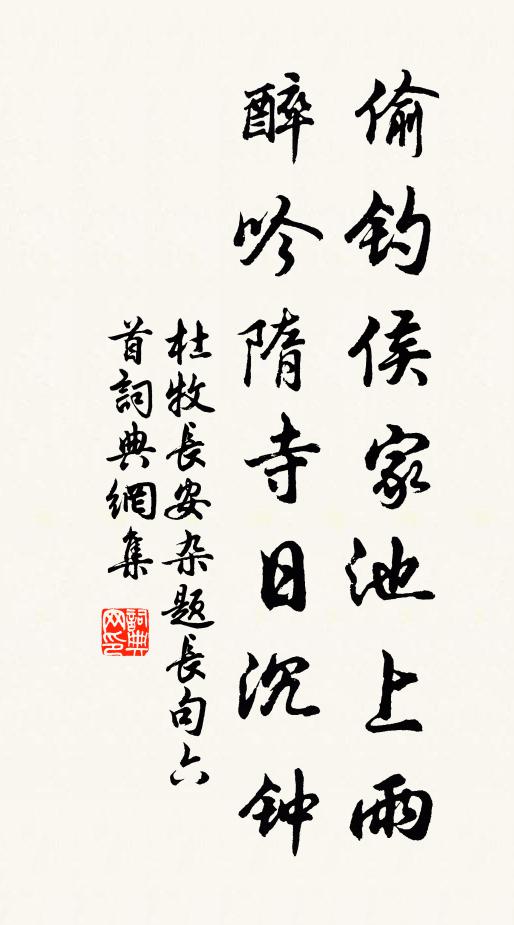 偷钓侯家池上雨
醉吟隋寺日沉钟
杜牧長安杂题長句六
首詞典網集
詞典
网印